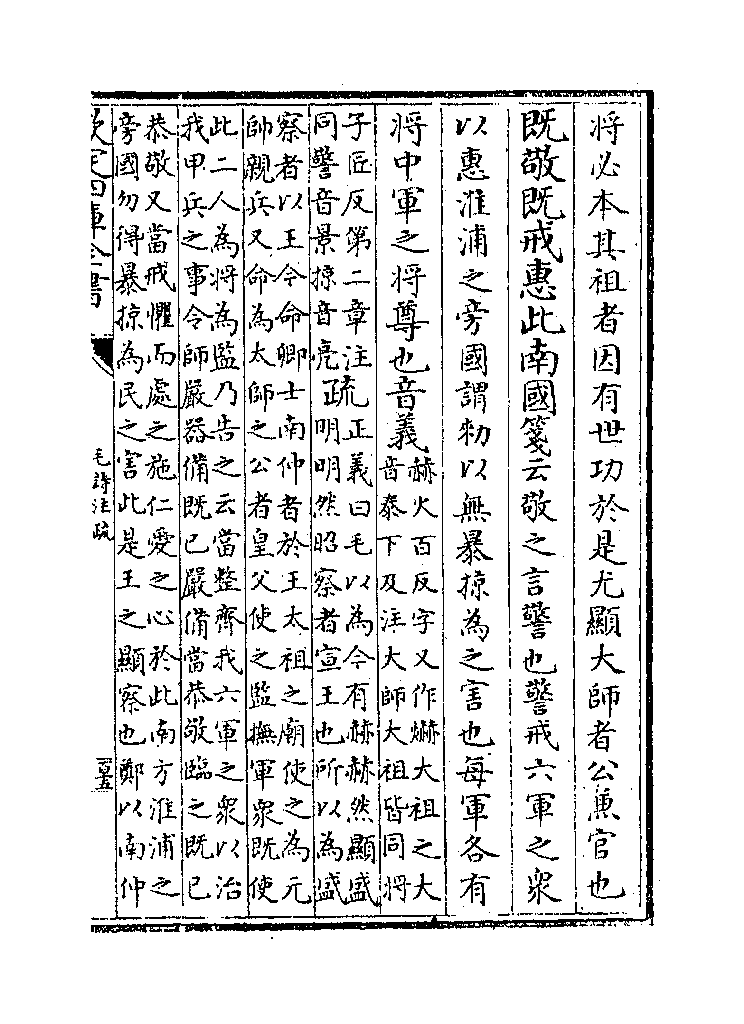 将必本其祖者因有世功於是尤顯大師者公兼官也
既敬既戒惠此南國箋云敬之言警也警戒六軍之衆
以惠淮浦之旁國謂勑以無暴掠為之害也每軍各有
将中軍之将尊也音義
赫火百反字又作爀大祖之大
音泰下及注大師大祖皆同将
子匠反第二章注
同警音景掠音亮
疏
正義曰毛以為今有赫赫然顯盛
明明然昭察者宣王也所以為盛
察者以王今命卿士南仲者於王太祖之廟使之為元
帥親兵又命為太師之公者皇父使之監撫軍衆既使
此二人為将為監乃告之云當整齊我六軍之衆以治
我甲兵之事令師嚴器備既已嚴備當恭敬臨之既已
恭敬又當戒懼而處之施仁愛之心於此南方淮浦之
旁國勿得暴掠為民之害此是王之顯察也鄭以南仲
欽定四庫全書
毛詩注疏